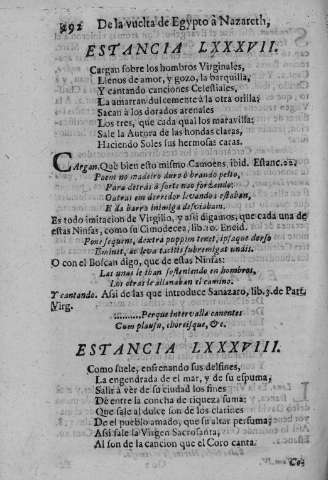 292 De la vuelta de Egypto à Nazareth,
ESTANCIA LXXXVII.
Cargan sobre los hombros Virginales,
Llenos de amor, y gozo, la barquilla,
Y cantando canciones Celestiales,
La amarran dulcemente à la otra orilla:
Sacan à los dorados arenales
Los tres, que cada qual los maravilla:
Sale la Aurora de las hondas claras,
Haciendo Soles sus hermosas caras.
Cargan. Què bien esto mismo Camoens, ibid. Estanc. 22.
Poem no madeiro duro ò brando peito,
Para detràs à forte nao forçando:
Outras em derredor levando estaban,
E da barra inimiga desviaban.
Es todo imitacion de Virgilio, y assi digamos, que cada una de
estas Ninfas, como su Cimodocea, lib. 10. Eneid.
Pone sequens, dextra puppim tenet, ipsaque dorso
Eminet, ac leva tacitis subremigat undis.
O con el Boscan digo, que de estas Ninfas:
Las unas le iban sosteniendo en hombros,
Los otras le allanaban el camino.
Y cantando. Assi de las que introduce Sanazaro, lib. 3. de Part.
Virg.
..........Perque intervalla canentes
Cum plausu, choreisque, &c.
ESTANCIA LXXXVIII.
Como suele, enfrenando sus delfines,
La engendrada de el mar, y de su espuma,
Salir à vèr de su ciudad los fines
De entre la concha de riqueza suma:
Que sale al dulce son de los clarines
De el pueblo amado, que su altar perfuma;
Assi sale la Virgen Sacrosanta,
Al son de la cancion que el Coro canta.
Co-